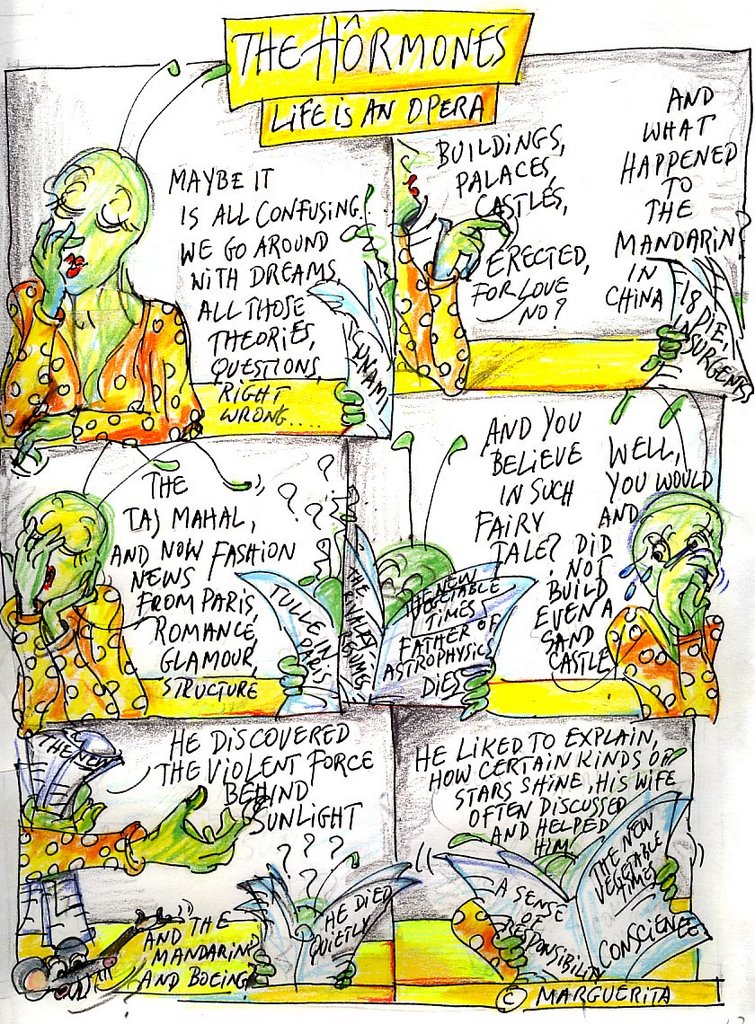 THE HÔRMONES
LIFE IS AN OPERA
MAYBE IT
IS ALL CONFUSING....
WE GO AROUND
WITH DREAMS,
ALL THOSE
THEORIES,
QUESTIONS,
RIGHT
WRONG....
TSUNAMI
BUILDINGS,
PALACES,
CASTLES,
ERECTED,
FOR LOVE
NO?
AND
WHAT
HAPPENED
TO
THE
MANDARIN
IN
CHINA
18 DIE,
THE
TAJ MAHAL,
AND NOW FASHION
NEWS
FROM PARIS,
ROMANCE,
GLAMOUR,
STRUCTURE
? ? ? ?
TULLE IN
PARIS
THE
AND YOU
BELIEVE
IN SUCH
FAIRY
TALE? DID
NOT
BUILD
EVEN A
SAND
CASTLE
WELL,
YOU WOULD
AND
THE NEW
VEGETABLE
TIMES
FATHER OF
ASTROPHYSICS
DIES
THE NEW
HE DISCOVERED
THE VIOLENT FORCE
BEHIND
SUNLIGHT
? ? ?
? ?
HE DIED
QUIETLY
AND THE
MANDARIN?
AND BOEING?
HE LIKED TO EXPLAIN,
HOW CERTAIN KINDS OF
STARS SHINE, HIS WIFE
OFTEN DISCUSSED
AND HELPED
HIM
THE NEW
VEGETABLE
TIMES
A SENSE
OF
RESPONSIBILITY
CONSCIENCE
© MARGUERITA